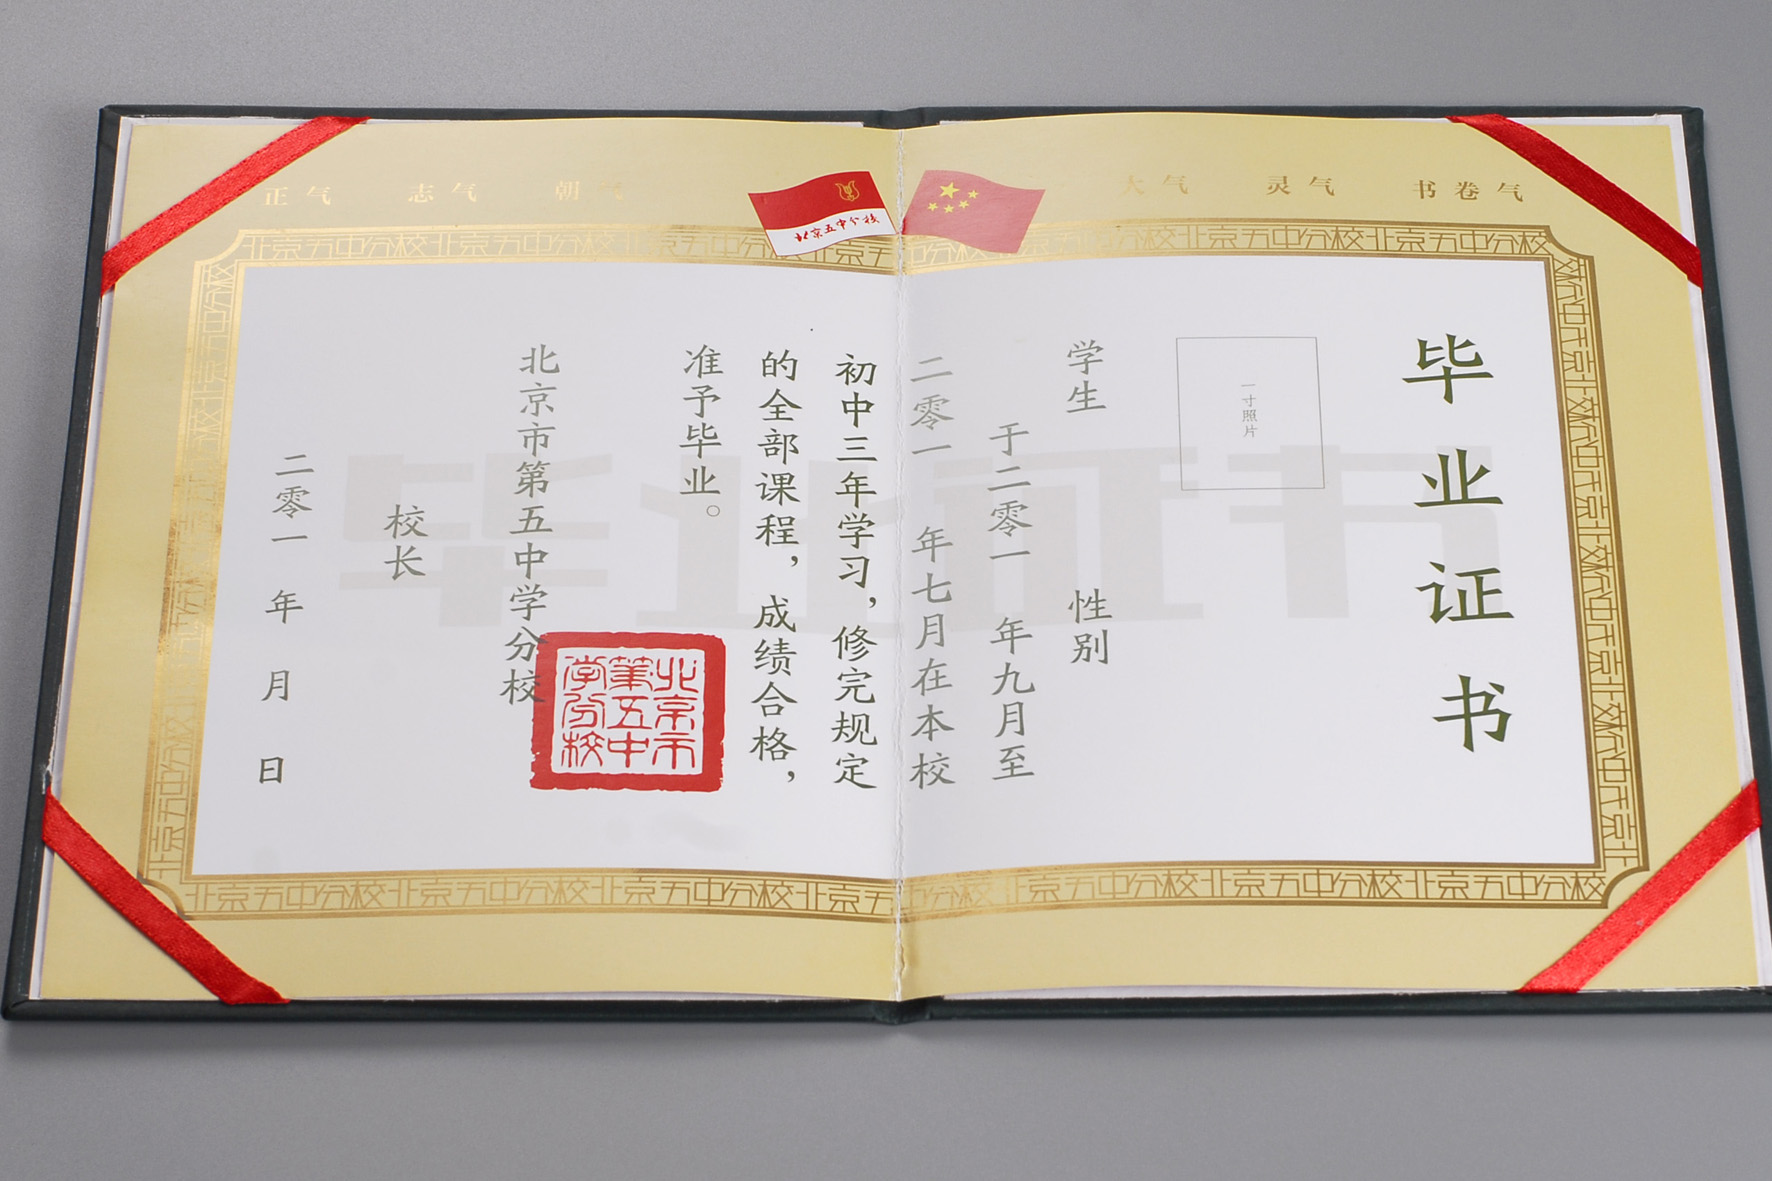 正气 志气 朝气
大气 灵气 书卷气
北京五中分校
毕业证书
一寸照片
学生 性别
于二零一 年九月至
二零一 年七月在本校
初中三年学习，修完规定
的全部课程，成绩合格，
准予毕业。
北京市第五中学分校
校长
二零一 年 月 日
北京市
第五中
学分校
毕业证书
北京五中分校北京五中分校北京五中分校北京五中分校北京五中分校北京五中分校